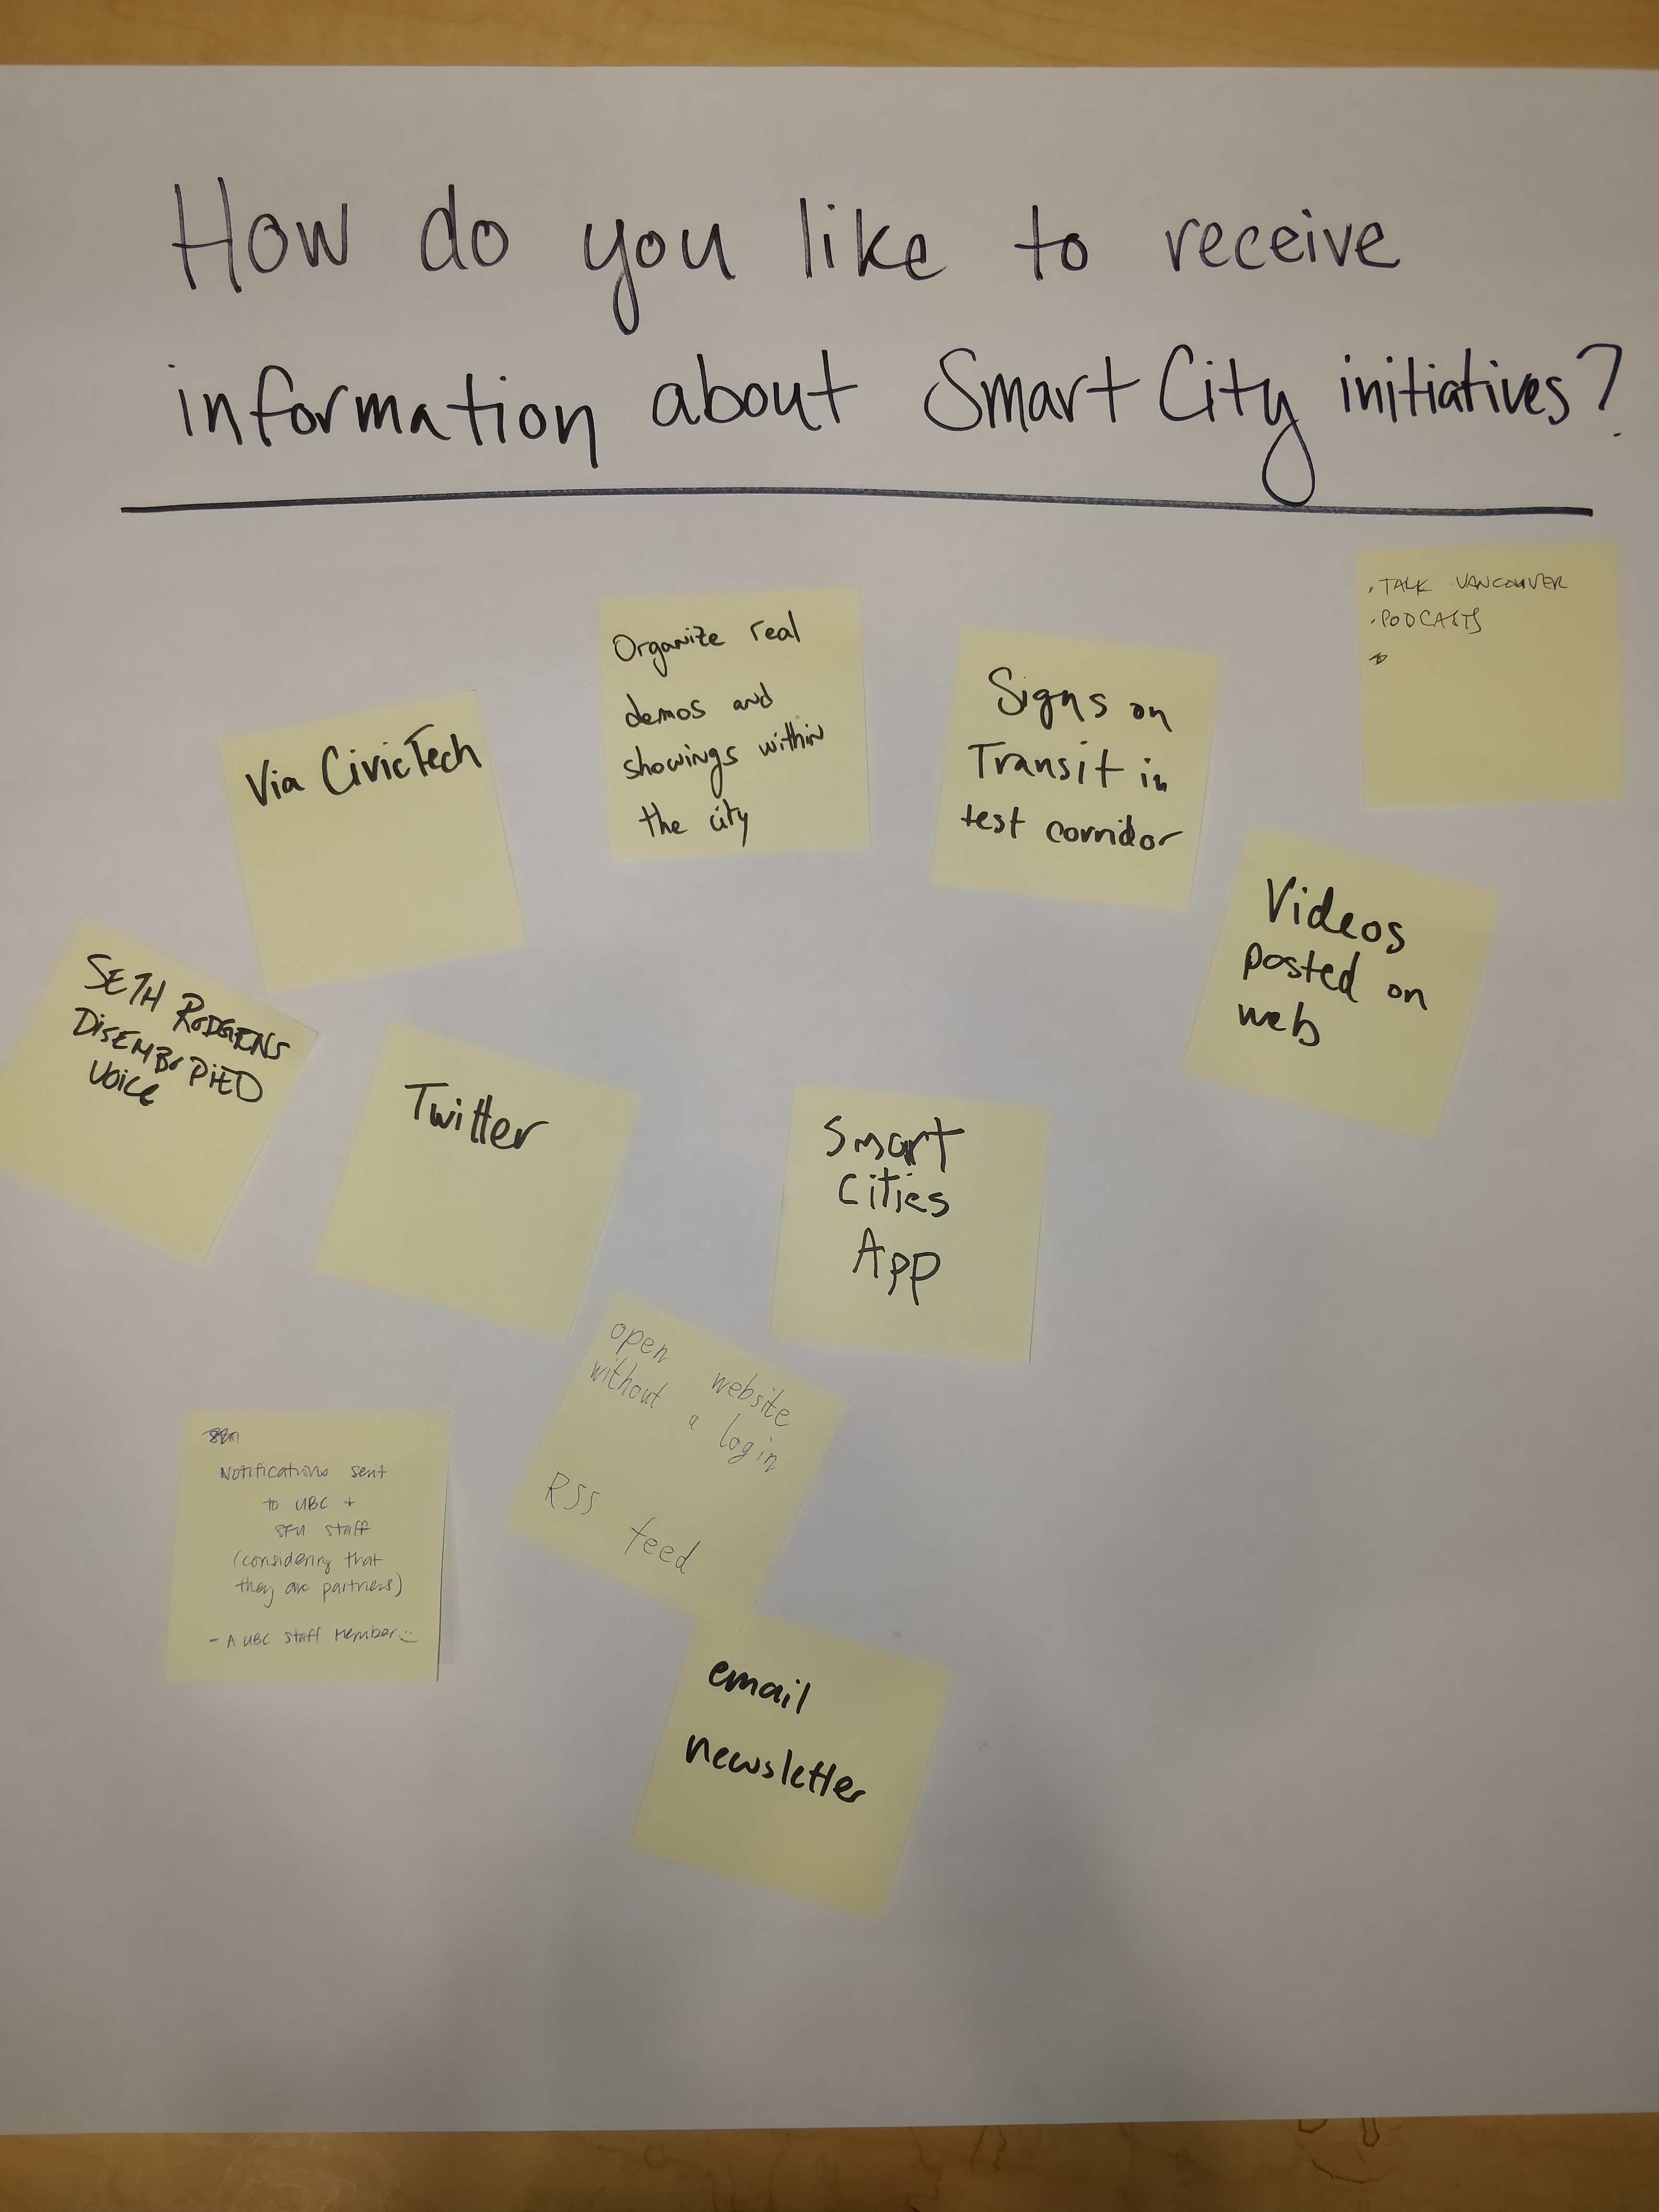 How do you like to receive
information about Smart City initiatives?
Via CivicTech
Organize real
demos and
showings within
the city
Signs on
Transit in
test corridor
· TALK VANCOUVER
· PODCASTS
Videos
posted on
web
SETH RODGENS
DISEMBODIED
VOICE
Twitter
Smart
Cities
App
open website
without a login
RSS feed
Notifications sent
to UBC +
SFU staff
(considering that
they are partners)
- A UBC staff member :)
email
newsletter